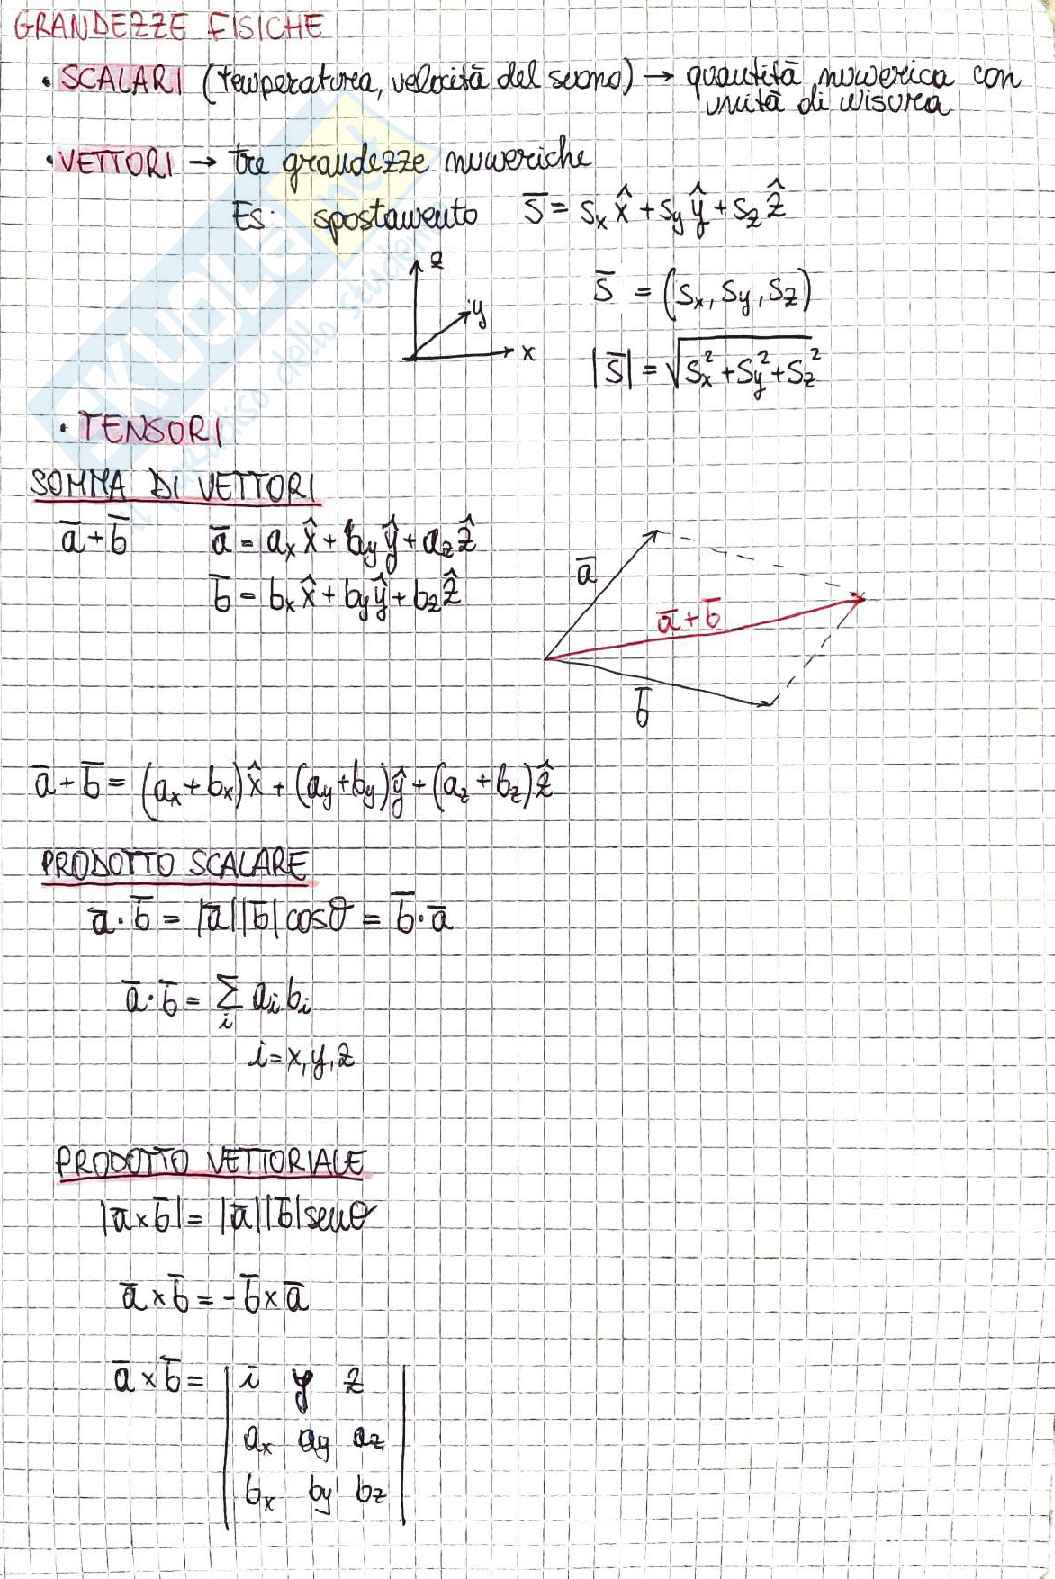 GRANDEZZE FISICHE
• SCALARI (temperatura, velocità del suono) → quantità numerica con
unità di misura
• VETTORI → tre grandezze numeriche
Es. spostamento s̅ = sₓ x̂ + s_y ŷ + s_z ẑ
z
y
x
s̅ = (sₓ, s_y, s_z)
|s̅| = √(sₓ² + s_y² + s_z²)
• TENSORI
SOMMA DI VETTORI
a̅ + b̅ a̅ = aₓ x̂ + b_y ŷ + a_z ẑ
b̅ = bₓ x̂ + b_y ŷ + b_z ẑ
a̅
a̅ + b̅
b̅
a̅ + b̅ = (aₓ + bₓ) x̂ + (a_y + b_y) ŷ + (a_z + b_z) ẑ
PRODOTTO SCALARE
a̅ · b̅ = |a̅||b̅| cosθ = b̅ · a̅
a̅ · b̅ = Σ_i a_i b_i
i = x, y, z
PRODOTTO VETTORIALE
|a̅ × b̅| = |a̅||b̅| senθ
a̅ × b̅ = - b̅ × a̅
a̅ × b̅ = | i y z |
| aₓ a_y a_z |
| bₓ b_y b_z |